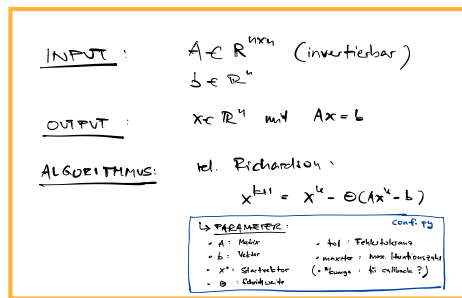 INPUT : A ∈ R^{n×n} (invertierbar)
b ∈ R^n
OUTPUT : x ∈ R^n mit Ax = b
ALGORITHMUS: rel. Richardson :
x^{k+1} = x^k - Θ(Ax^k - b)
config.py
↳ PARAMETER :
• A : Matrix
• b : Vektor
• x⁰ : Startvektor
• Θ : Schrittweite
• tol : Fehlertoleranz
• maxiter : max. Iterationszahl
(• *kwargs : für callback ?)